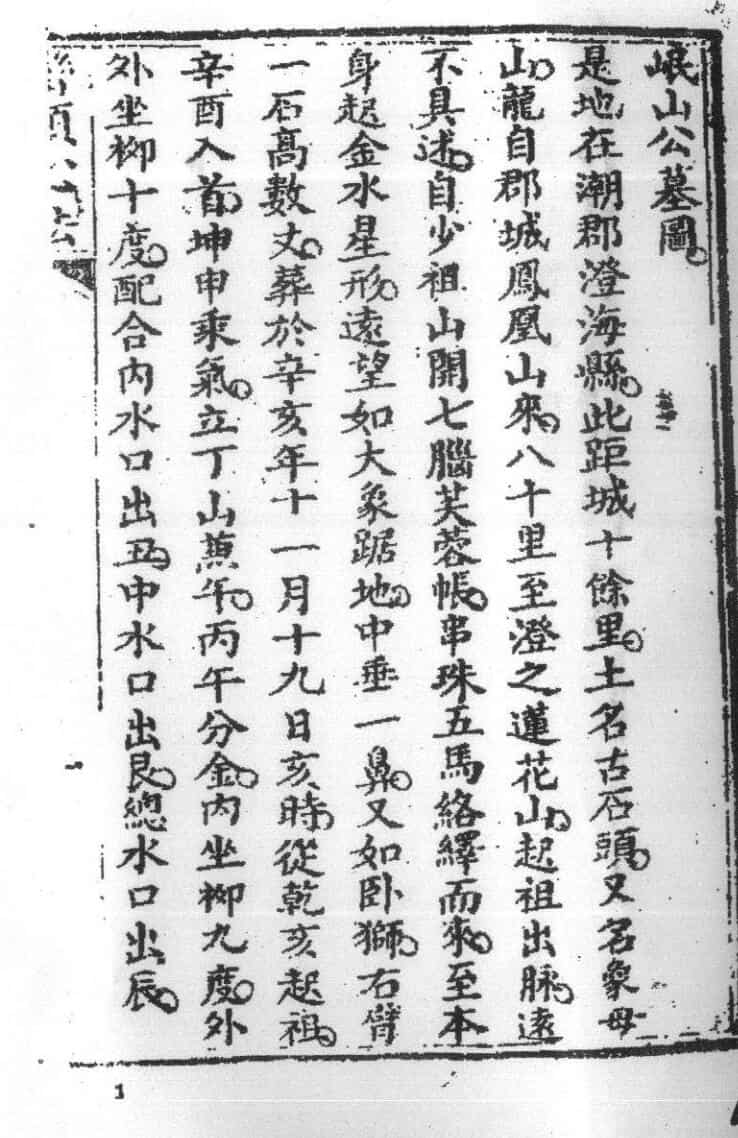 岷山公墓圖。
是地在潮郡澄海縣。此距城十餘里。土名古石頭。又名象母
山。龍自郡城鳳凰山來。八十里至澄之蓮花山。起祖出脉。遠
不具述。自少祖山開七腦芙蓉帳。串珠五馬絡繹而來。至本
身起金水星形。遠望如大象踞地。中垂一鼻。又如卧獅。右臂
一石高數丈。葬於辛亥年十一月十九日亥時。從乾亥起祖。
辛酉入首。坤申乘氣。立丁山蒹午。丙午分金。內坐柳九度。外
外坐柳十度。配合內水口出丑。中水口出艮。總水口出辰。
1